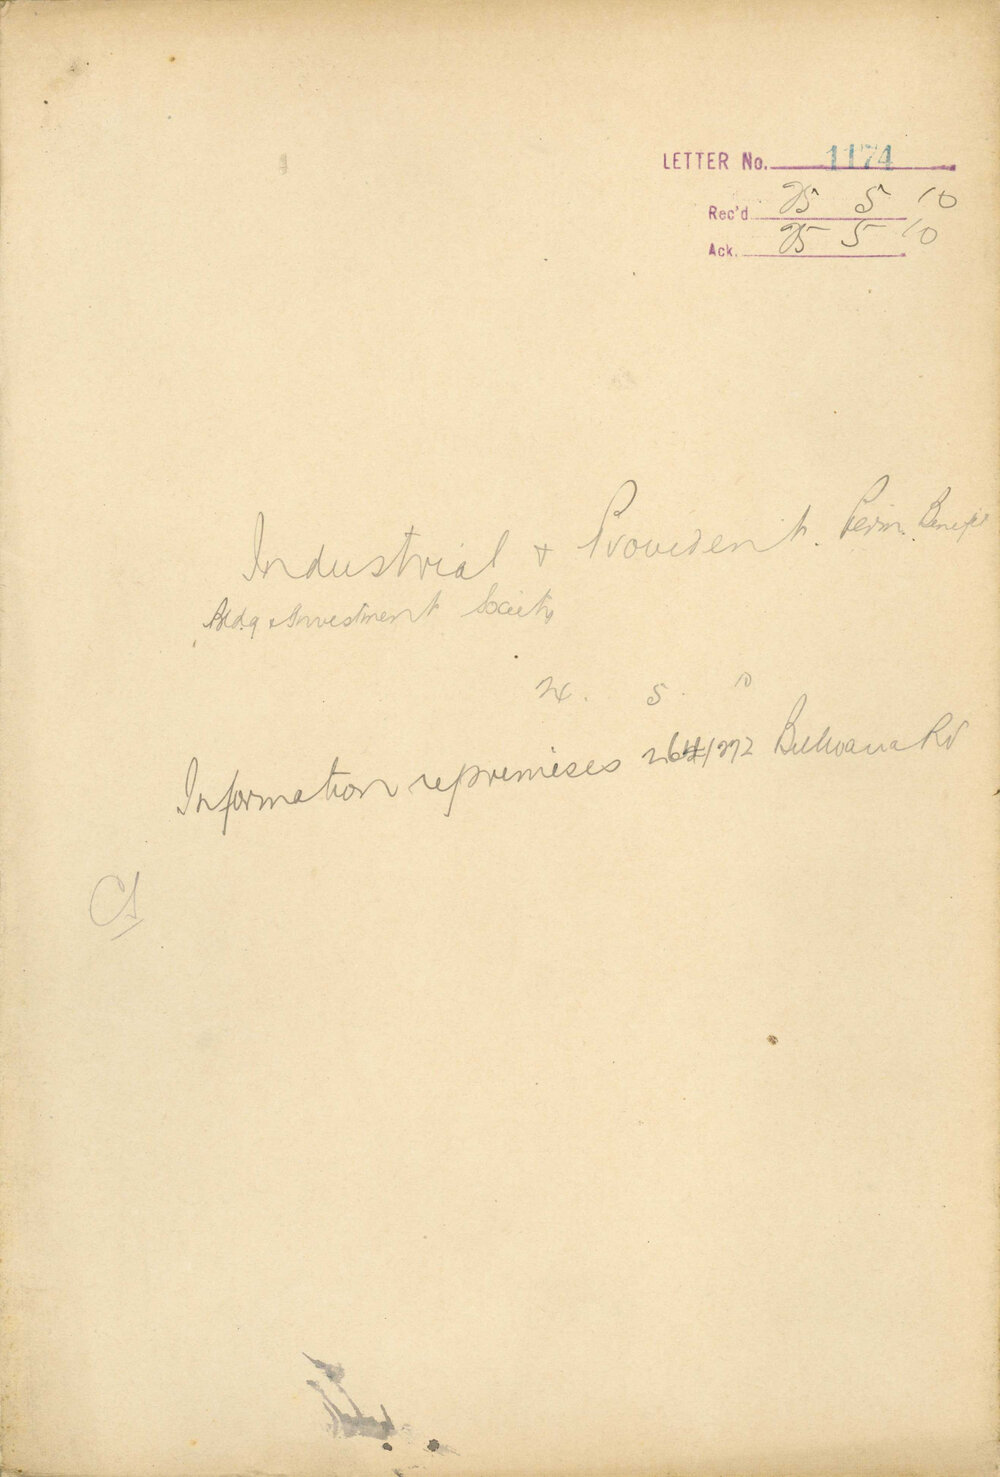 LETTER No. 1174
Rec'd 25 5 10
Ack. 25 5 10
Industrial + Provident. Perm. Benefit
Bldg & Investment Society
24. 5. 10
Information re premises 264/272 Bulwara Rd